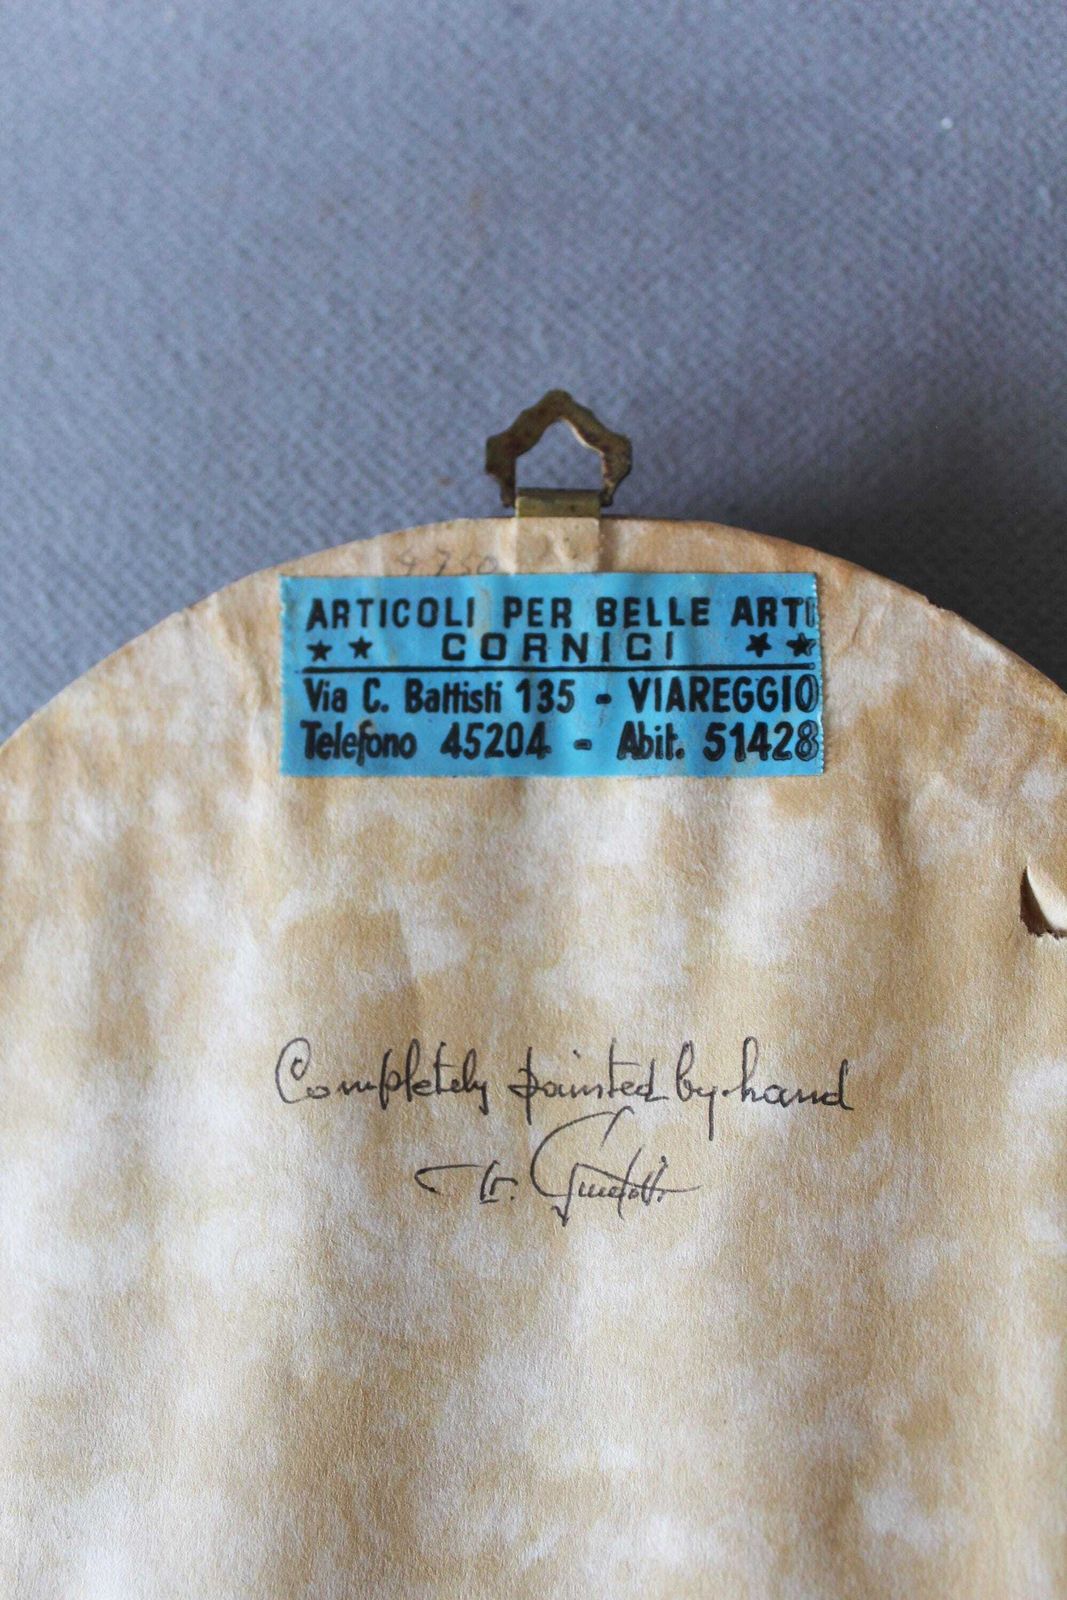 4750
ARTICOLI PER BELLE ARTI
★ ★ CORNICI ★ ★
Via C. Battisti 135 - VIAREGGIO
Telefono 45204 - Abit. 51428
Completely painted by hand